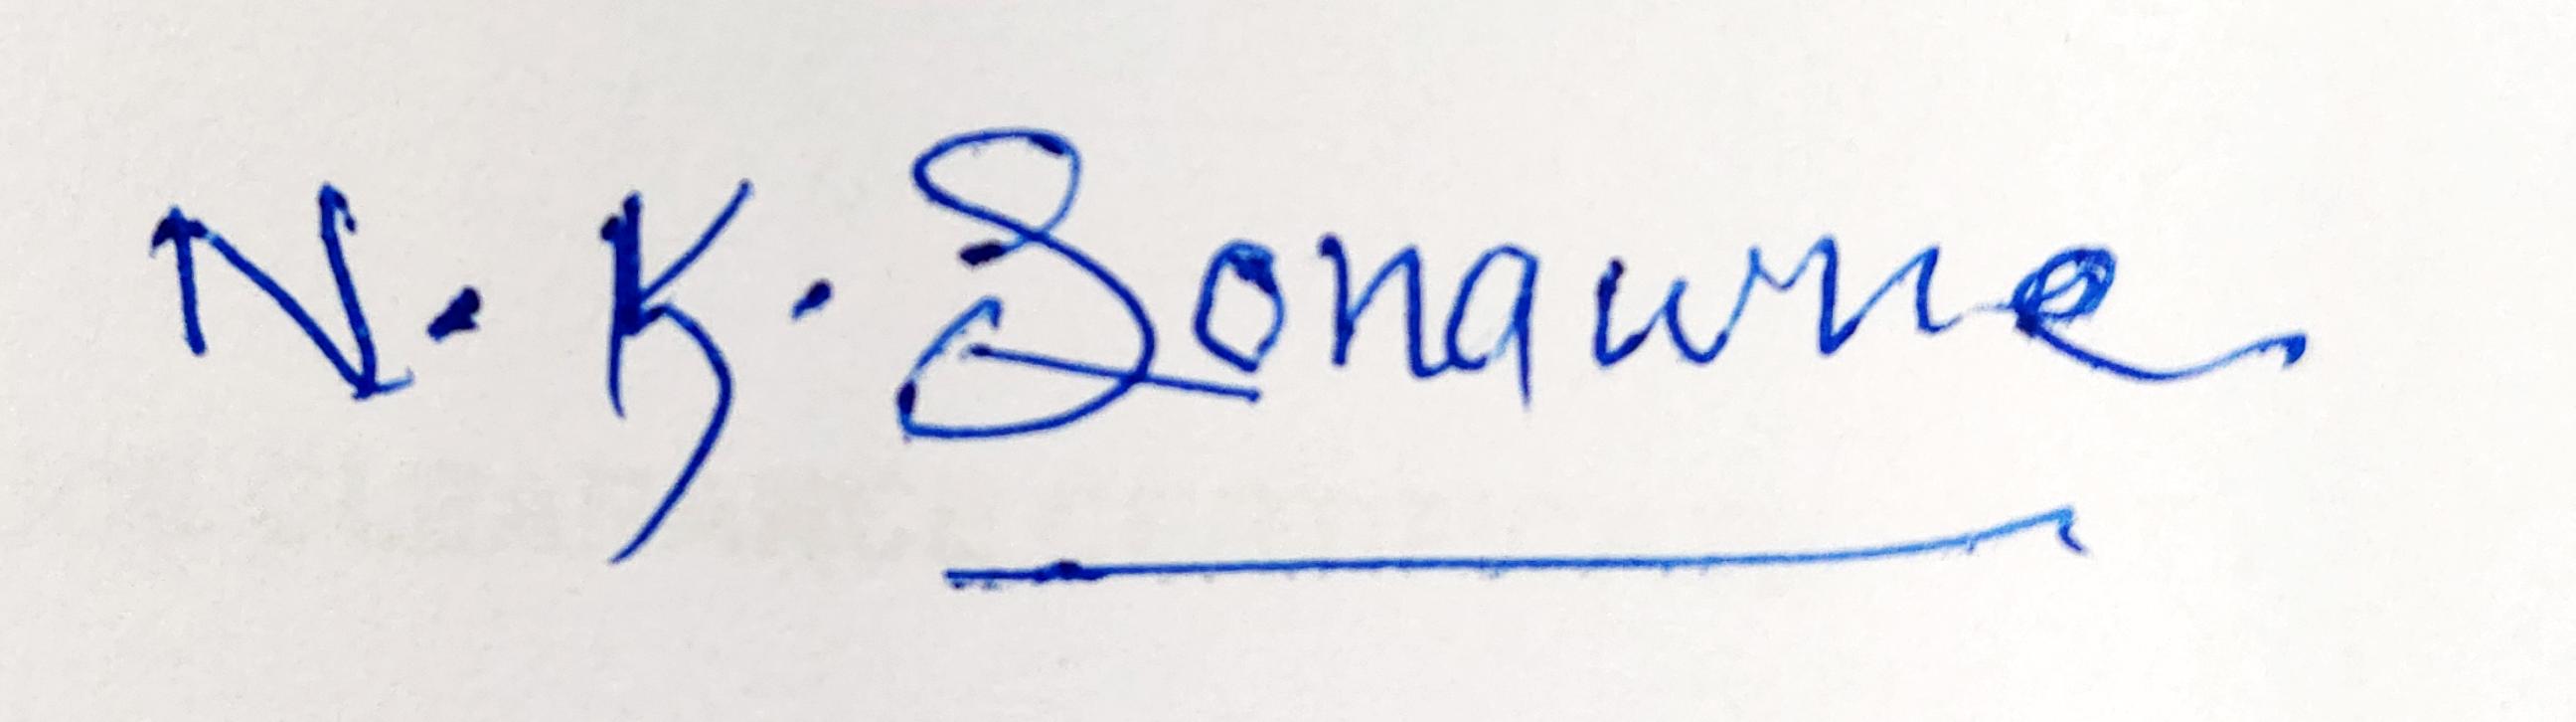 N. K. Sonawne